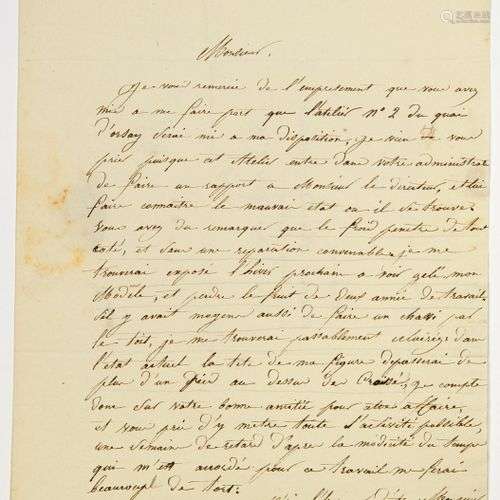 Monsieur.
Je vous remercie de l'empresement que vous avez
mis a me faire part que l'atelier n° 2 du quai
d'orsay serai mi a ma disposition, je vien vous
prier puisque cet Atelier entre dans votre administrat
de faire un rapport a Monsieur le directeur, et lui
faire connaitre le mauvai état ou il se trouve.
vous avez du remarque que le froid penetre de tout
coté, et sans une reparation convenable je me
trouverai exposé l'hiver prochain a voir gelé mon
Modèle, et perdre le fruit de deux année de travail.
s'il y avait moyen aussi de faire un chassi par
le toit, je me trouverai passablement éclairé, dans
l'état actuel la tete de ma figure depasserai de
plus d'un pied au dessu de Croisé, je compte
donc sur votre bonne amitié pour cette affaire,
et vous pri d'y metre toute l'activité possible,
une semaine de retard d'apre la modicité du temps
qui m'est accordé pour ce travail me ferai
beaucoup de tort.